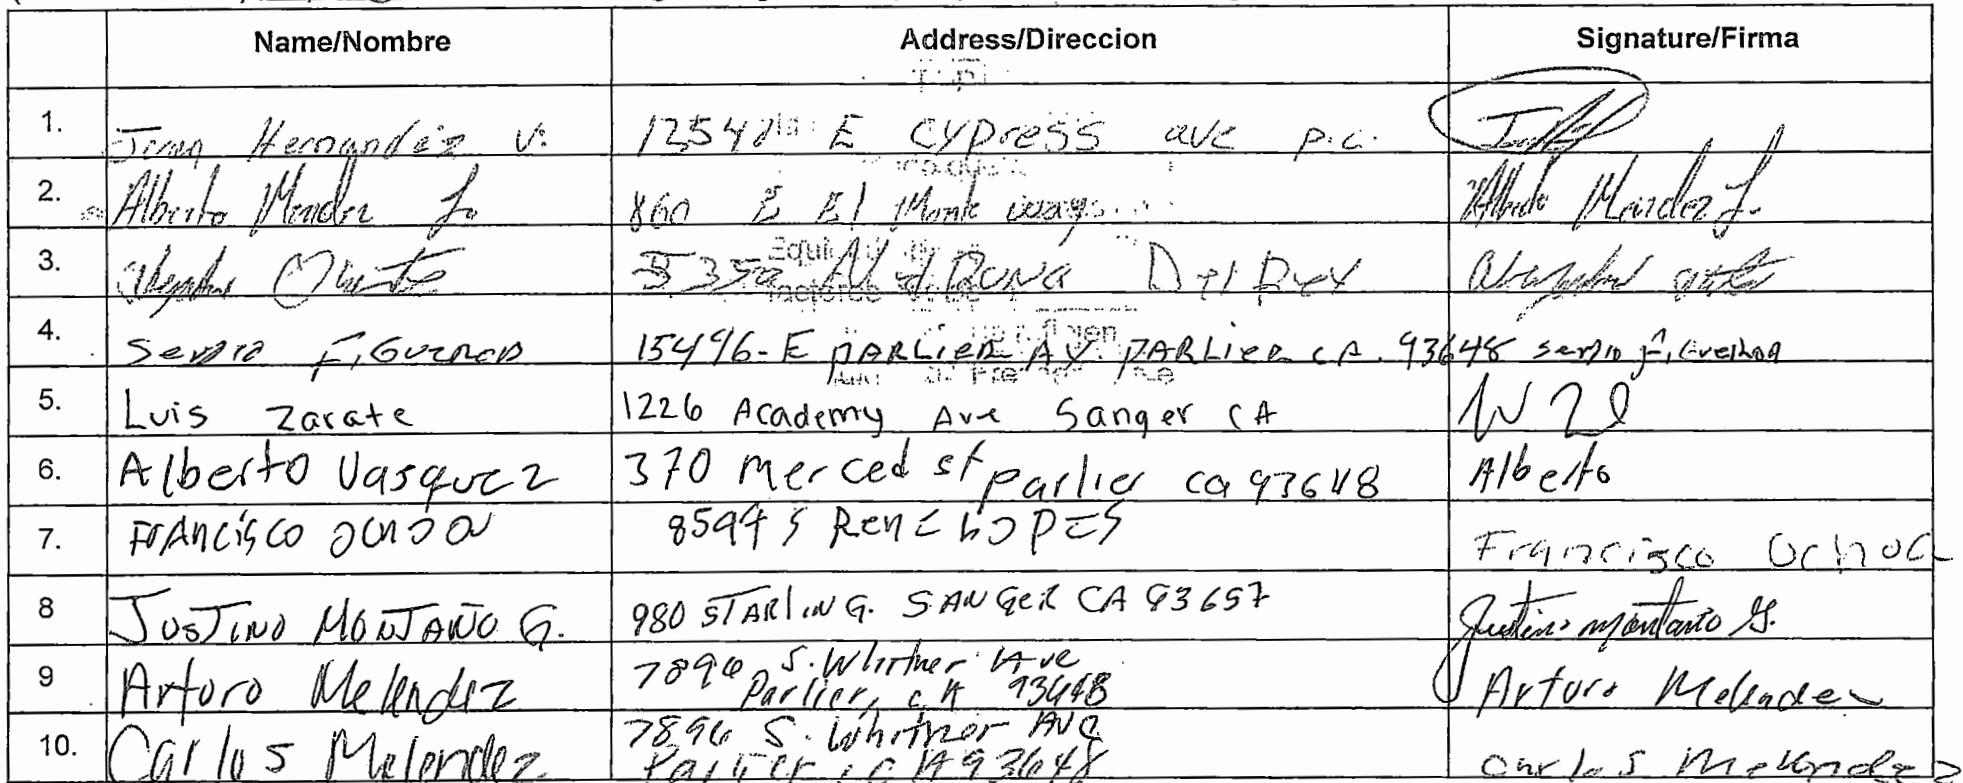 Name/Nombre Address/Direccion Signature/Firma
1. Juan Hernandez V. 12548 E Cypress ave p.c.
2. Alberto Mendez L. 860 E El Monte ways Alberto Mendez L.
3. Del Rey
4. Sergio Figueroa 15496-E PARLIER AV. PARLIER CA. 93648 Sergio Figueroa
5. Luis Zarate 1226 Academy Ave Sanger CA
6. Alberto Vasquez 370 Merced st parlier ca 93648 Alberto
7. FRANCISCO OCHOA 8594 S Rene Francisco Ochoa
8 JUSTINO MONTAÑO G. 980 STARLING. SANGER CA 93657 Justino montaño G.
9 Arturo Melendez 7896 S. Whitner Ave
Parlier, CA 93648 Arturo Melendez
10. Carlos Melendez 7896 S. Whitner Ave
Parlier, CA 93648 Carlos Melendez